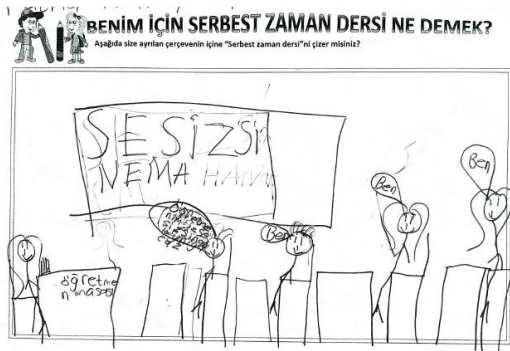 BENİM İÇİN SERBEST ZAMAN DERSİ NE DEMEK?
Aşağıda size ayrılan çerçevenin içine "Serbest zaman dersi"ni çizer misiniz?
SESİZSİ
NEMA
Ben
Ben
Ben
öğretme
n masası